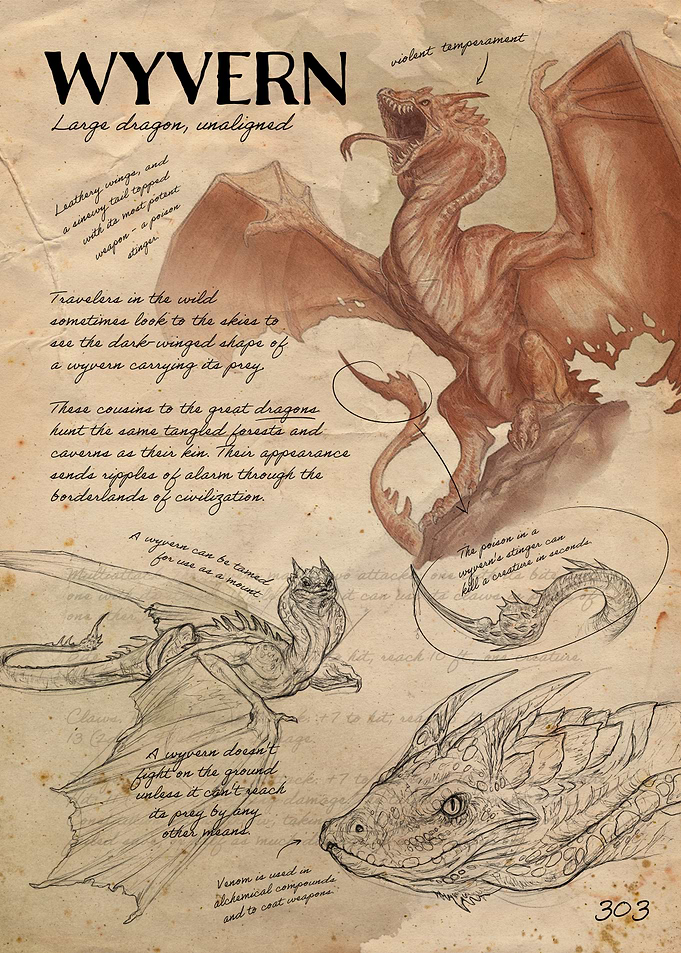 WYVERN
Large dragon, unaligned
violent temperament
Leathery wings, and
a sinewy tail topped
with its most potent
weapon - a poison
stinger.
Travelers in the wild
sometimes look to the skies to
see the dark-winged shape of
a wyvern carrying its prey.
These cousins to the great dragons
hunt the same tangled forests and
caverns as their kin. Their appearance
sends ripples of alarm through the
borderlands of civilization.
The poison in a
wyvern's stinger can
kill a creature in seconds.
A wyvern can be tamed
for use as a mount.
Multiattack. two attacks: one
one with its
one other.
hit, reach 10 ft., one creature.
Claws. +7 to hit, reach
A wyvern doesn't
fight on the ground
unless it can't reach
its prey by any
other means.
Venom is used in
alchemical compounds
and to coat weapons.
303